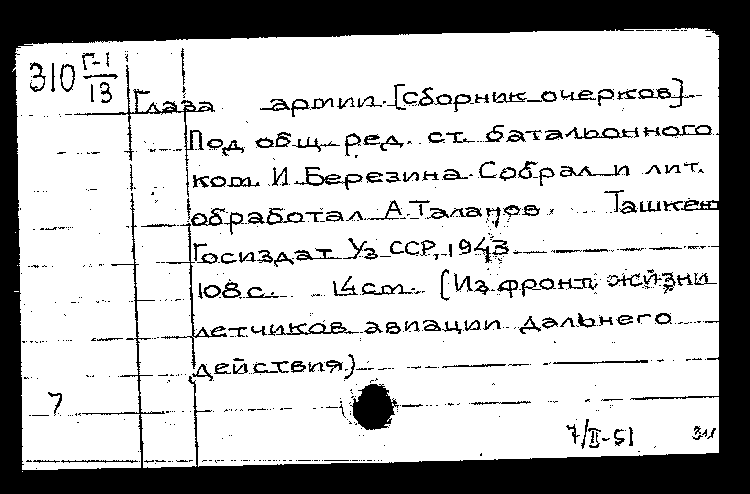 310 Г-1/13
Глаза армии. [сборник очерков]
Под общ. ред. ст. батальонного
ком. И. Березина. Собрал и лит.
обработал А. Таланов. Ташкент
Госиздат Уз ССР, 1943
108 с. 14 cm. (Из фронт. жизни
летчиков авиации дальнего
действия)
7
7/II-51